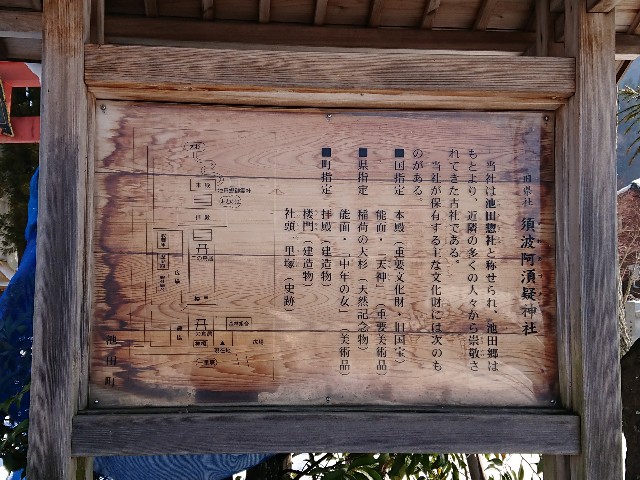 旧県社 須波阿湏疑神社
当社は池田惣社と称せられ、池田郷は
もとより、近隣の多くの人々から崇敬さ
れてきた古社である。
当社が保有する主な文化財には次のも
のがある。
■国指定 本殿（重要文化財・旧国宝）
能面・「天神」（重要美術品）
■県指定 稲荷の大杉（天然記念物）
能面・「中年の女」（美術品）
■町指定 拝殿（建造物）
楼門（建造物）
社頭 里塚（史跡）
池田町
本殿
拝殿
二の鳥居
広場
現在地
広場